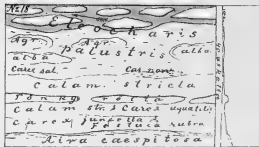 No 18
Eleocharis
Agr. Agr.
palustris alba
alba
Carex nov.
calam. stricta
calam str. Carex
carex juncella & Festuca rubra
Aira caespitosa